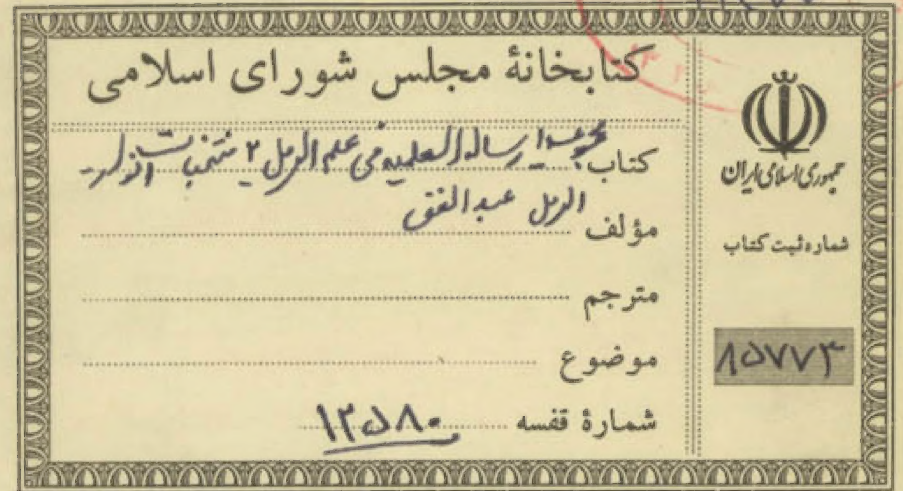 کتابخانهٔ مجلس شورای اسلامی
کتاب رساله فی علم الرمل ۲ منتخبات
الرمل
مؤلف عبد الغنی
مترجم
موضوع
شمارهٔ قفسه ۱۲۵۸۰
جمهوری اسلامی ایران
شماره ثبت کتاب
۸۵۷۷۳